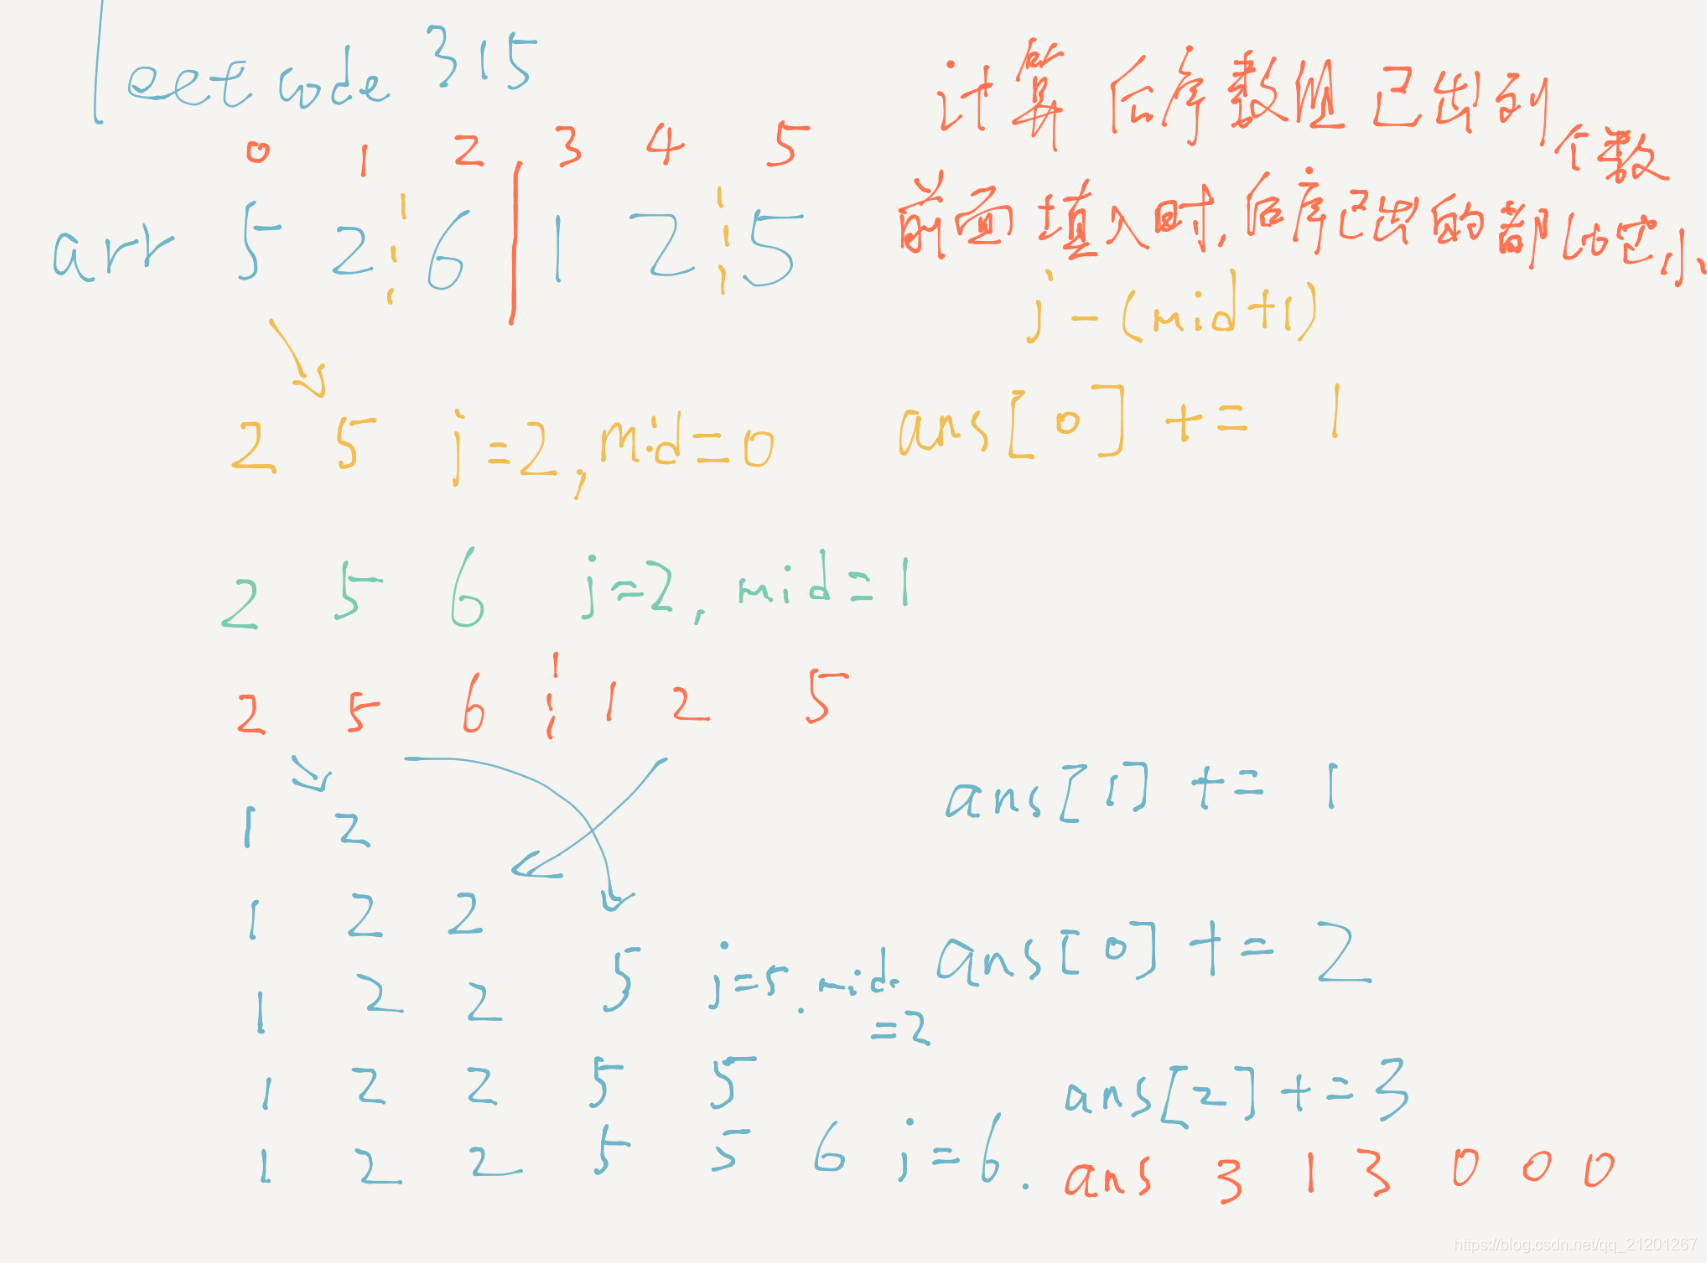 leetcode 315
计算 后序数组 已出列个数
0 1 2 3 4 5
前面填入时,后序已出的都比它小
arr 5 2 6 1 2 5
j-(mid+1)
2 5 j=2,mid=0 ans[0] += 1
2 5 6 j=2, mid=1
2 5 6 1 2 5
ans[1] += 1
1 2
1 2 2
1 2 2 5 j=5. mid=2 ans[0] += 2
1 2 2 5 5 ans[2] += 3
1 2 2 5 5 6 j=6. ans 3 1 3 0 0 0
https://blog.csdn.net/qq_21201267